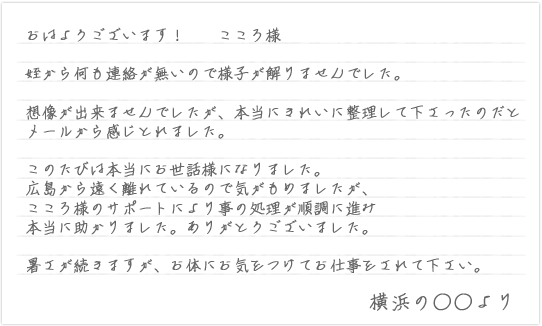 おはようございます！　　こころ様
姪から何も連絡が無いので様子が解りませんでした。
想像が出来ませんでしたが、本当にきれいに整理して下さったのだと
メールから感じとれました。
このたびは本当にお世話様になりました。
広島から遠く離れているので気がもりましたが、
こころ様のサポートにより事の処理が順調に進み
本当に助かりました。ありがとうございました。
暑さが続きますが、お体にお気をつけてお仕事をされて下さい。
横浜の〇〇より